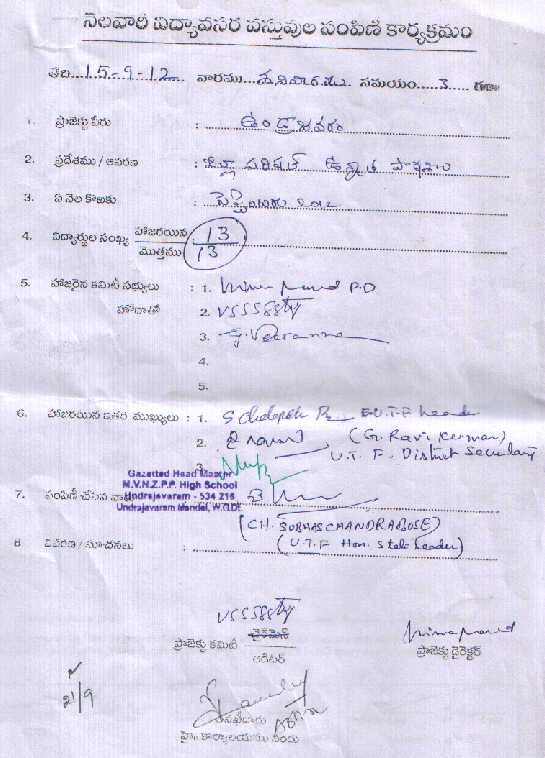 నెలవారీ విద్యావసర వస్తువుల పంపిణీ కార్యక్రమం
తేది...15-9-12 వారము...శనివారము సమయం...3..... గంటల
1. ప్రాజెక్టు పేరు : ఉండ్రజవరం
2. ప్రదేశము / ఆవరణ : జిల్లా పరిషత్ ఉన్నత పాఠశాల
3. ఏ నెల కొఱకు : సెప్టెంబరు 2012
4. విద్యార్థుల సంఖ్య హాజరయిన 13
మొత్తము 13
5. హాజరైన కమిటీ సభ్యులు : 1. P.D
హోదాతో 2.
3. G. Veeranna
4.
5.
6. హాజరయిన ఇతర ముఖ్యులు : 1. E.U.T.F Leader
2. (G. Ravi Kumar)
U.T.F. District Secretary
3.
Gazetted Head Master
M.V.N.Z.P.P. High School
Undrajavaram - 534 216
Undrajavaram Mandal, W.G.Dt
7. పంపిణీ చేసిన వారు
(CH. SUBHAS CHANDRABOSE)
(U.T.F Hon. State Leader)
8 వివరణ / సూచనలు :
ప్రాజెక్టు కమిటీ చైర్మన్
ఆడిటర్
ప్రాజెక్టు డైరెక్టర్
21/9
హై. కార్యాలయము నందు